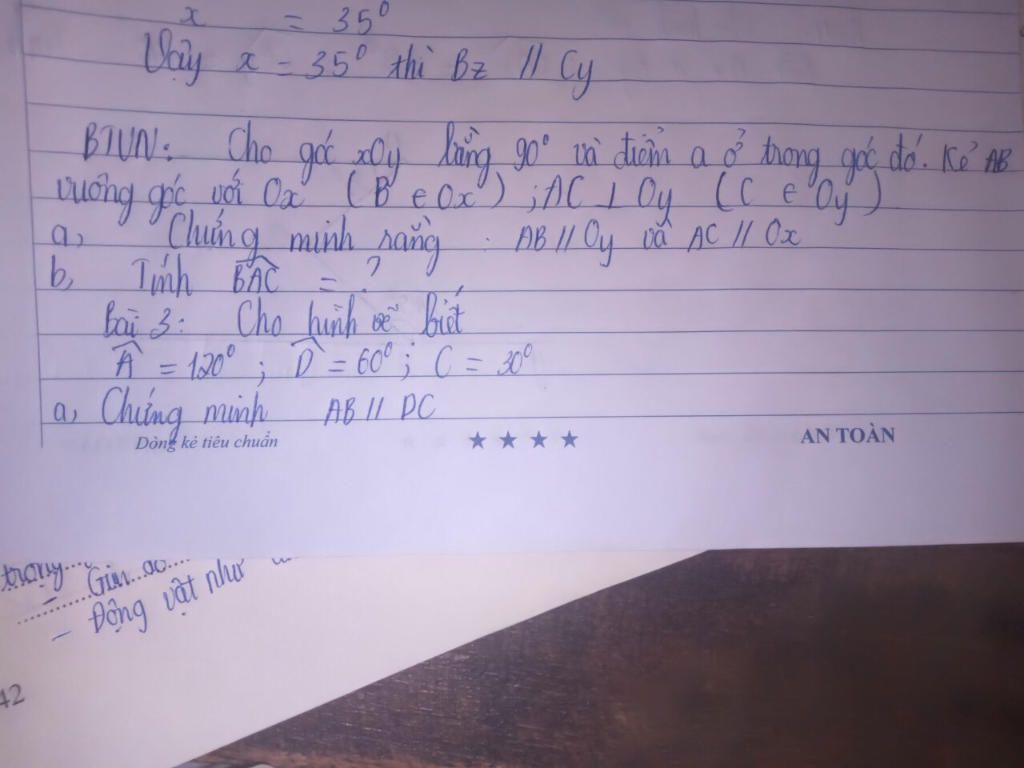 x = 35⁰
Vậy x = 35⁰ thì Bz // Cy
BTVN: Cho góc xOy bằng 90⁰ và điểm a ở trong góc đó. Kẻ AB
vuông góc với Ox ( B ∈ Ox ) ; AC ⊥ Oy ( C ∈ Oy )
a, Chứng minh rằng : AB // Oy và AC // Ox
b, Tính \widehat{BAC} = ?
Bài 3: Cho hình vẽ biết
\widehat{A} = 120⁰ ; \widehat{D} = 60⁰ ; C = 30⁰
a, Chứng minh AB // DC
Dòng kẻ tiêu chuẩn ★ ★ ★ ★ AN TOÀN
trọng...
- Động vật như
42